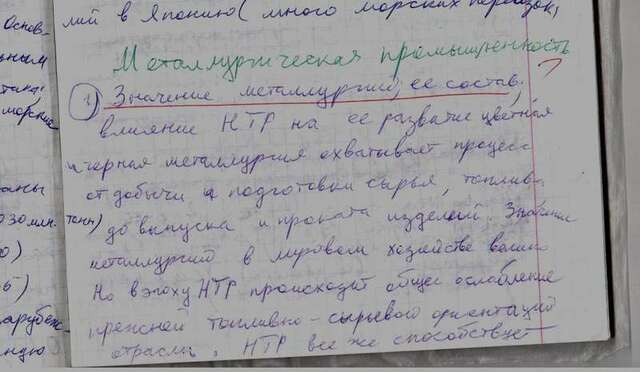 Основ-
лий в Японию (много морских перевозок,
Металлургическая промышленность
1) Значение металлургии, ее состав,
влияние НТР на ее развитие цветная
и черная металлургия охватывает процесс
от добычи и подготовки сырья, топлива
до выпуска и проката изделий. Значение
металлургий в мировом хозяйстве велико
Но в эпоху НТР происходит общее ослабление
прежней топливно-сырьевой ориентаций
отрасли. НТР все же способствует
ьным
морские
аны
030 млн. тонн)
0)
6)
арубеж-
ную